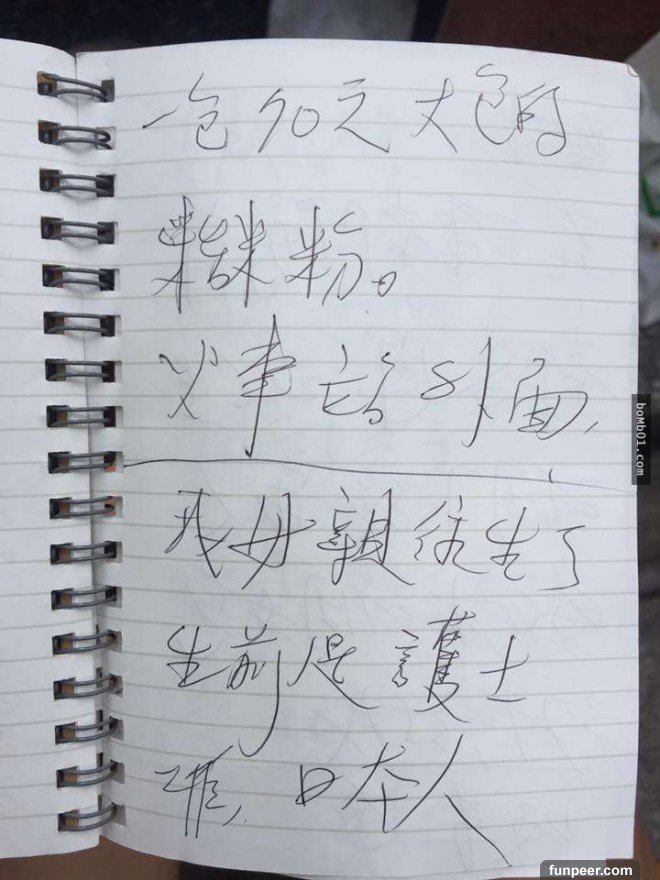 一包70元大包的
糊米粉。
火車站外面,
我母親往生了
生前是護士
日本人
bomb01.com
funpeer.com